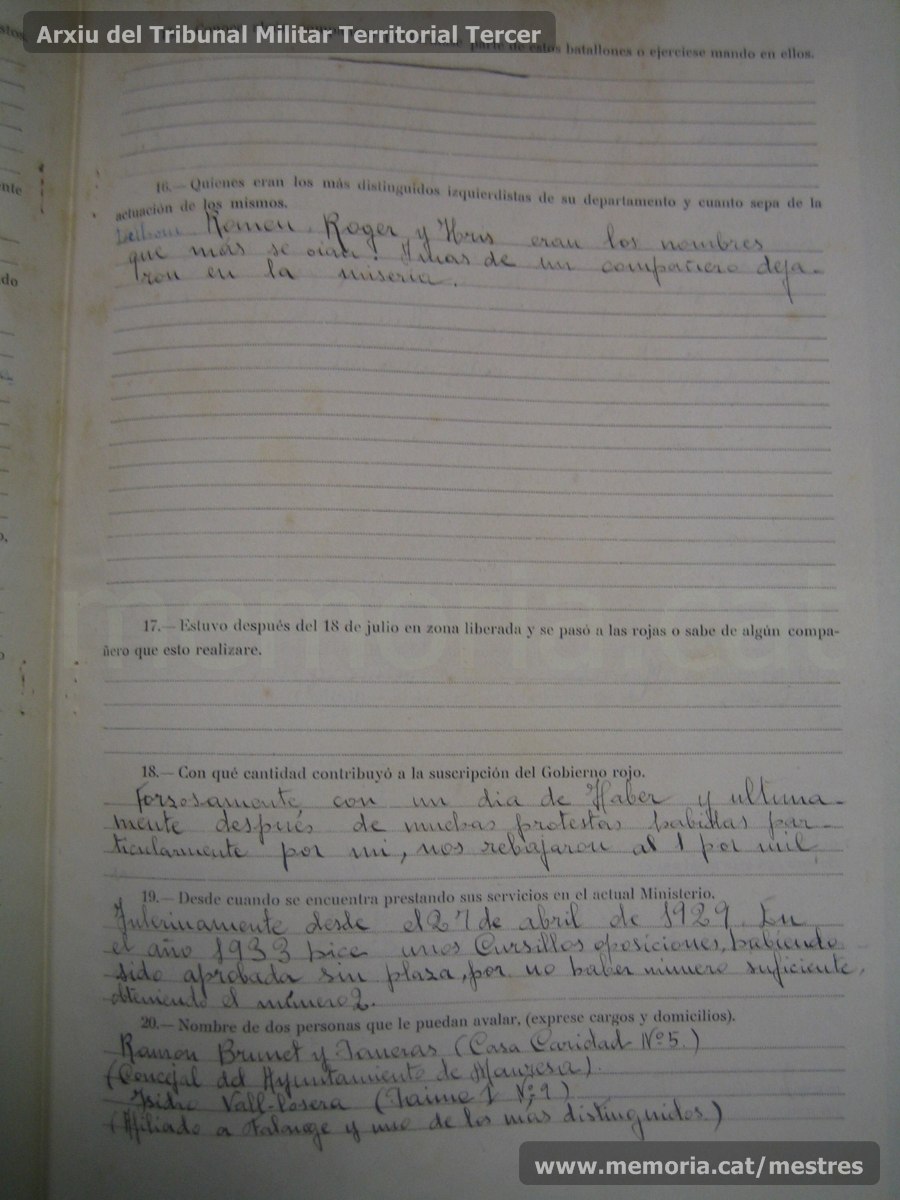 Arxiu del Tribunal Militar Territorial Tercer
parte de estos batallones o ejerciese mando en ellos.
16.— Quienes eran los más distinguidos izquierdistas de su departamento y cuanto sepa de la
actuación de los mismos.
Ramón, Roger y Hris eran los nombres
que más se oían. de un compañero deja-
ron en la miseria.
17.— Estuvo después del 18 de julio en zona liberada y se pasó a las rojas o sabe de algún compa-
ñero que esto realizare.
18.— Con qué cantidad contribuyó a la suscripción del Gobierno rojo.
Forzosamente con un dia de Haber y ultima-
mente después de muchas protestas habillas par-
ticularmente por mi, nos rebajaron al 1 por mil
19.— Desde cuando se encuentra prestando sus servicios en el actual Ministerio.
Interinamente desde el 27 de abril de 1929. En
el año 1933 hice unos Cursillos oposiciones, habiendo
sido aprobada sin plaza, por no haber número suficiente,
obteniendo el número 2.
20.— Nombre de dos personas que le puedan avalar, (exprese cargos y domicilios).
Ramón Brunet y (Casa Caridad Nº 5.)
(Concejal del Ayuntamiento de Manresa).
Isidro Vall-llosera (Jaime I Nº 9)
(Afiliado a Falange y uno de los más distinguidos)
memoria.cat
www.memoria.cat/mestres